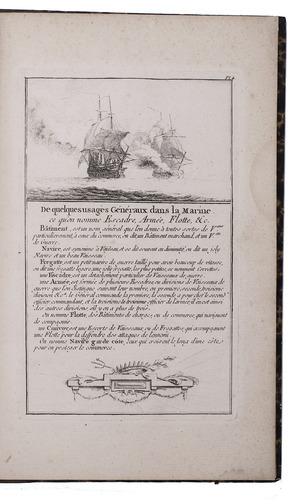 De quelques usages Généraux dans la Marine
ce qu'on nomme Escadre, Armée, Flotte, &c.
Bâtiment, est un nom général que l'on donne à toutes sortes de
particulierement, à ceux du commerce, on dit un Bâtiment marchand, et un
de Guerre.
Navire, est synonime à Vaisseau, et se dit souvent en on dit un joly
Navire et un beau Vaisseau.
Fregatte, est un petit navire de guerre taillé pour avoir beaucoup de vitesse,
on dit une fregatte legere, une jolie fregatte, les plus petites, se nomment Corvettes.
une Escadre, est un detachement particulier de Vaisseaux de guerre.
une Armée, est formée de plusieurs Escadres, ou divisions de Vaisseaux de
guerre que l'on distingue suivant leur nombre, en premiere, seconde, troisieme
division &c. le Général commande la premiere, la seconde a pour chef le second
officier commandant, et la troisieme le troisieme officier de l'armée, il en est ainsi
des autres divisions s'il y en a plus de trois.
On nomme Flotte, des Bâtiments de charges, ou de commerce, qui naviguent
de compagnie.
un Convoy, est une Escorte de Vaisseaux, ou de Fregattes, qui accompagnent
une Flotte pour la deffendre des attaques de l'ennemi.
On nomme Navire garde côte, ceux qui croisent le long d'une côte,
pour en proteger le commerce.